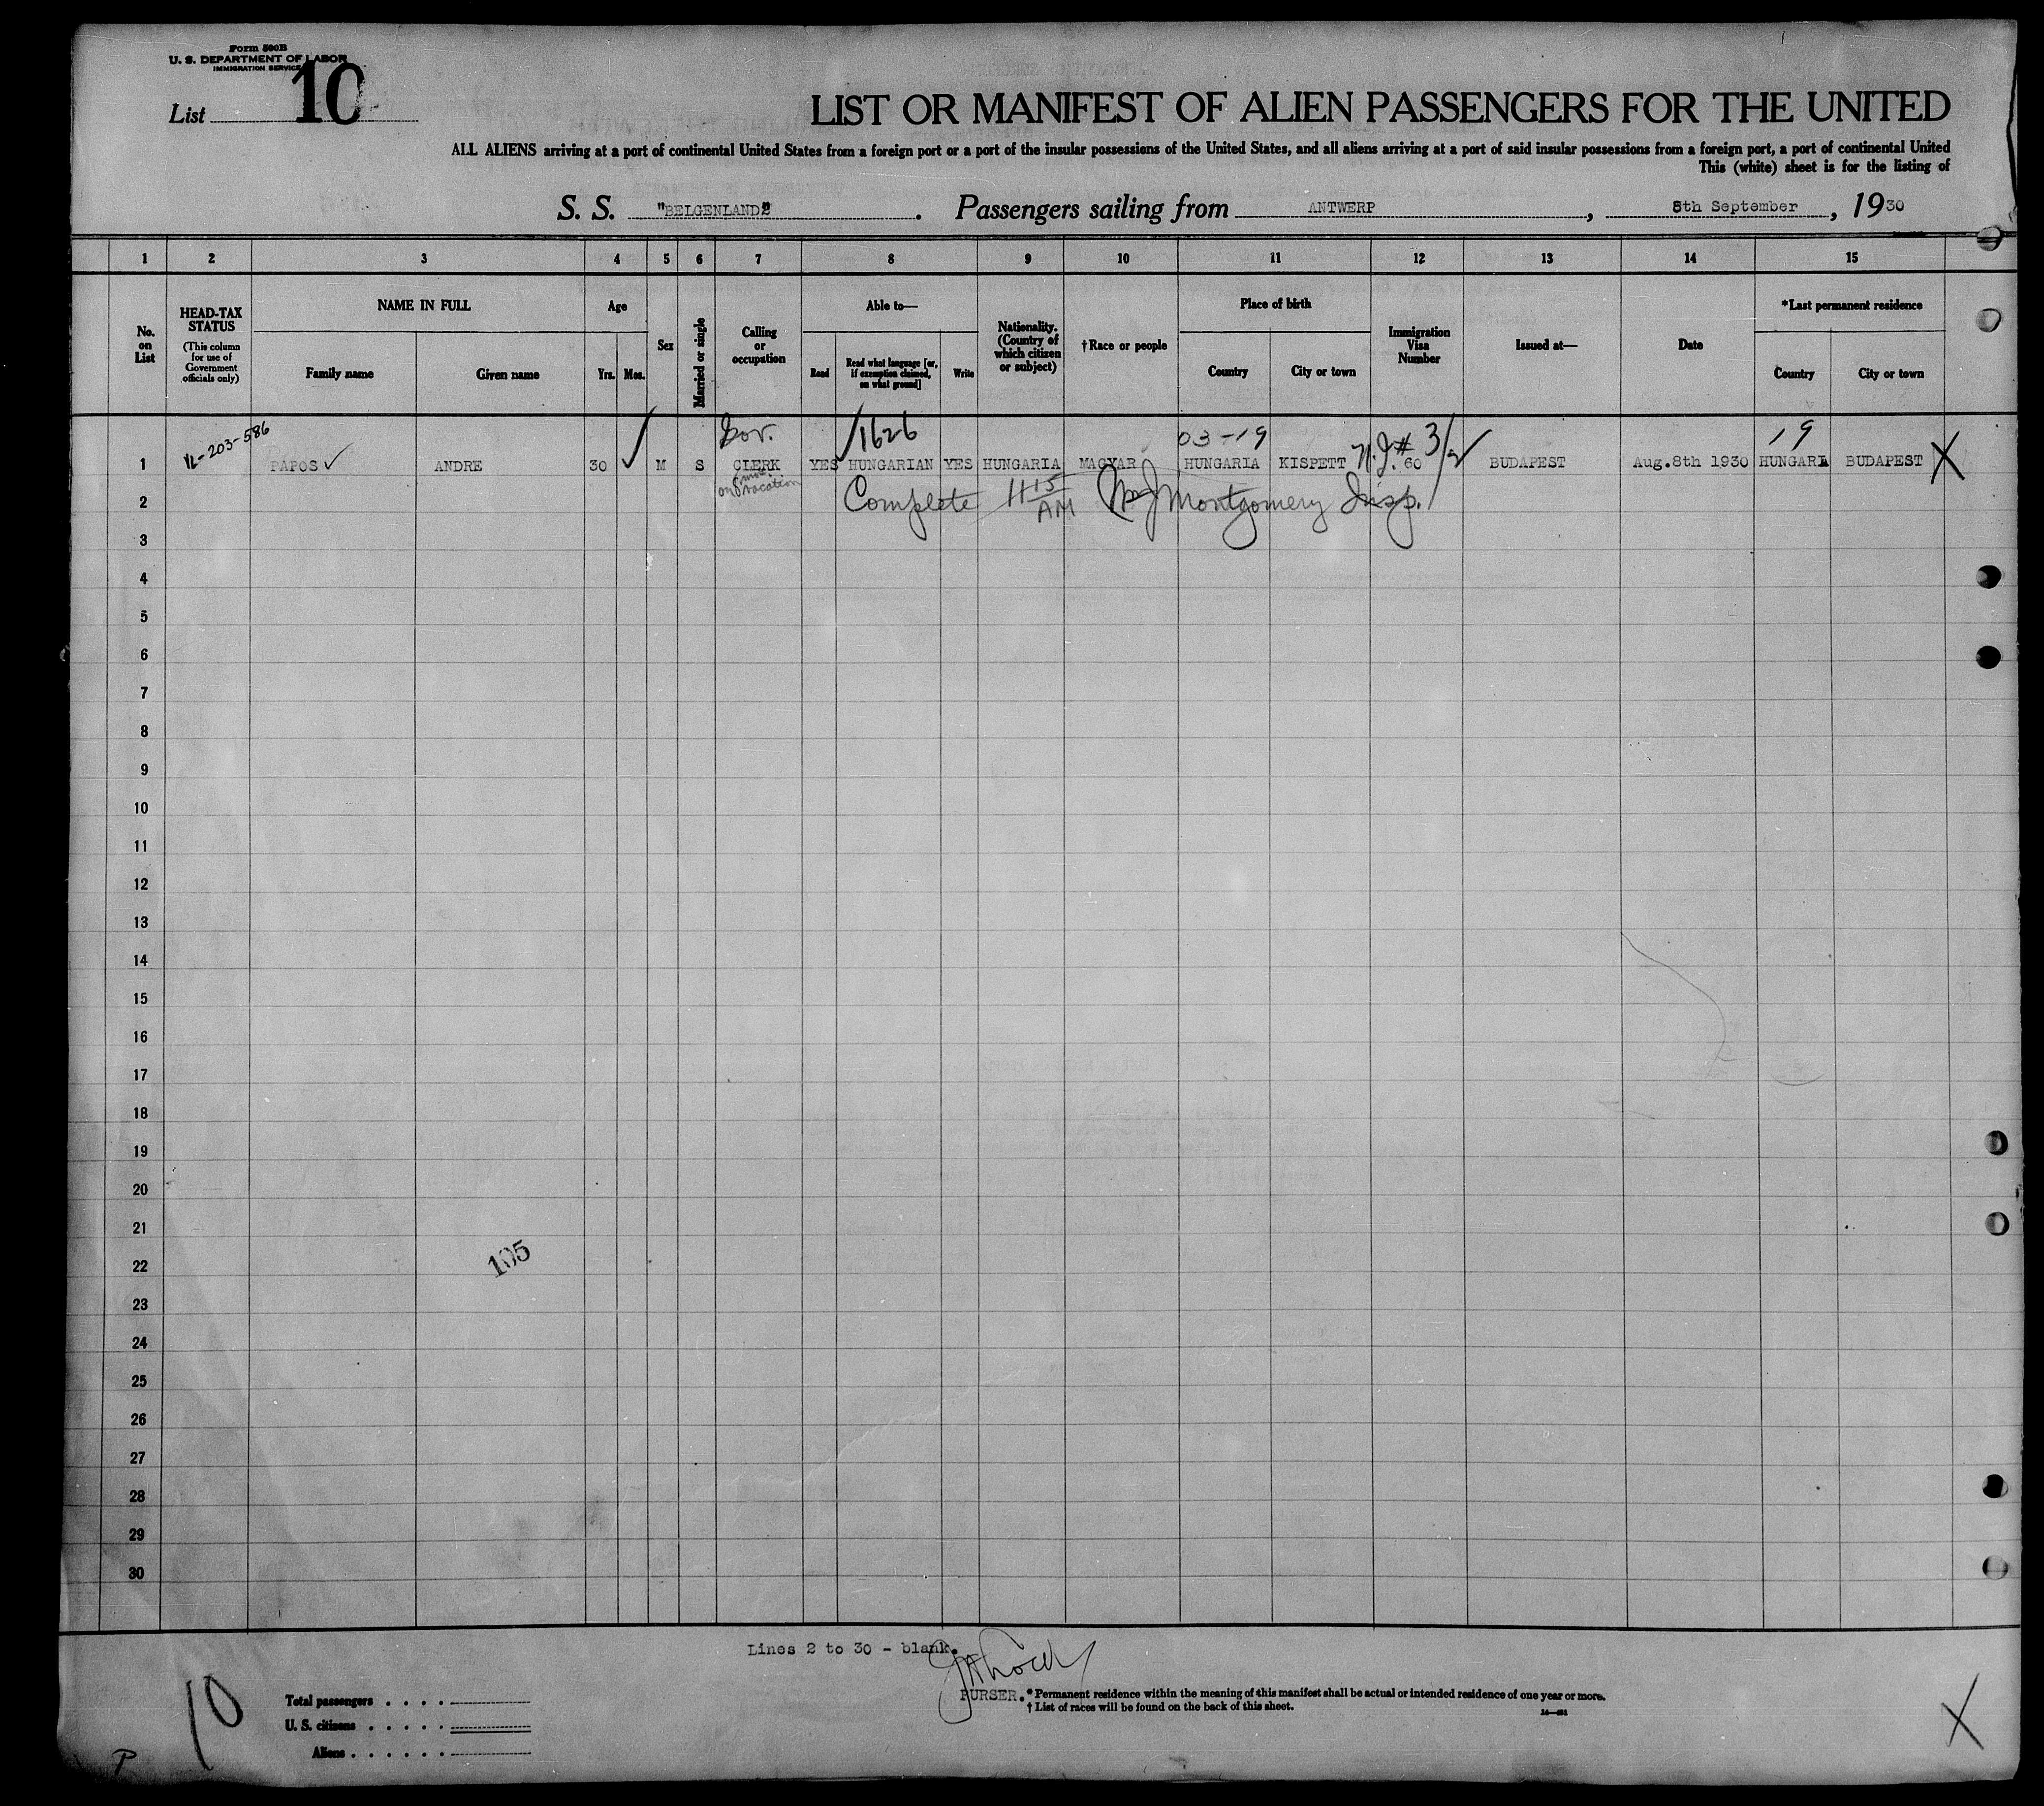 Form 500B
U. S. DEPARTMENT OF LABOR
IMMIGRATION SERVICE
List 10
LIST OR MANIFEST OF ALIEN PASSENGERS FOR THE UNITED
ALL ALIENS arriving at a port of continental United States from a foreign port or a port of the insular possessions of the United States, and all aliens arriving at a port of said insular possessions from a foreign port, a port of continental United
This (white) sheet is for the listing of
S. S. "BELGENLAND" . Passengers sailing from ANTWERP , 8th September , 1930
1 2 3 4 5 6 7 8 9 10 11 12 13 14 15
No. on List
HEAD-TAX STATUS
(This column for use of Government officials only)
NAME IN FULL
Family name
Given name
Age
Yrs. Mos.
Sex
Married or single
Calling or occupation
Able to—
Read
Read what language [or, if exemption claimed, on what ground]
Write
Nationality. (Country of which citizen or subject)
†Race or people
Place of birth
Country
City or town
Immigration Visa Number
Issued at—
Date
*Last permanent residence
Country
City or town
12-203-586 Gov. 1626 03-19 N.J.# 3/2 19
1 PAPOS ✓ ANDRE 30 ✓ M S CLERK YES HUNGARIAN YES HUNGARIA MAGYAR HUNGARIA KISPETT 60 BUDAPEST Aug.8th 1930 HUNGARI BUDAPEST X
on vacation
2 Complete 11 15 AM Montgomery Insp.
3
4
5
6
7
8
9
10
11
12
13
14
15
16
17
18
19
20
21
105
22
23
24
25
26
27
28
29
30
Lines 2 to 30 - blank.
10
Total passengers . . . .
U. S. citizens . . . . .
Aliens . . . . . .
PURSER.
* Permanent residence within the meaning of this manifest shall be actual or intended residence of one year or more.
† List of races will be found on the back of this sheet.
X
P